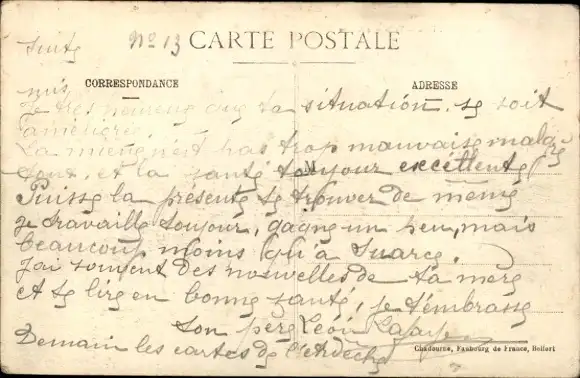 Suite N° 13 CARTE POSTALE
CORRESPONDANCE
ADRESSE
suis
Je très heureux que ta situation se soit
améliorée.
La mienne n'est pas trop mauvaise malgré
tout, et la santé toujour excellente
M
Puisse la présente te trouver de meme
je travaille toujour, gagne un peu, mais
beaucoup moins qu'à Suarez.
J'ai souvent des nouvelles de ta mere
et te lire en bonne santé, je t'embrasse
Ton père Léon
Demain les cartes de l'Ardèche
Chadourne, Faubourg de France, Belfort